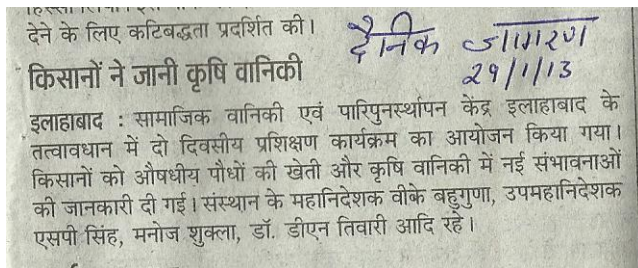 देने के लिए कटिबद्धता प्रदर्शित की।
दैनिक जागरण
29/1/13
किसानों ने जानी कृषि वानिकी
इलाहाबाद : सामाजिक वानिकी एवं पारिपुनर्स्थापन केंद्र इलाहाबाद के
तत्वावधान में दो दिवसीय प्रशिक्षण कार्यक्रम का आयोजन किया गया।
किसानों को औषधीय पौधों की खेती और कृषि वानिकी में नई संभावनाओं
की जानकारी दी गई। संस्थान के महानिदेशक वीके बहुगुणा, उपमहानिदेशक
एसपी सिंह, मनोज शुक्ला, डॉ. डीएन तिवारी आदि रहे।